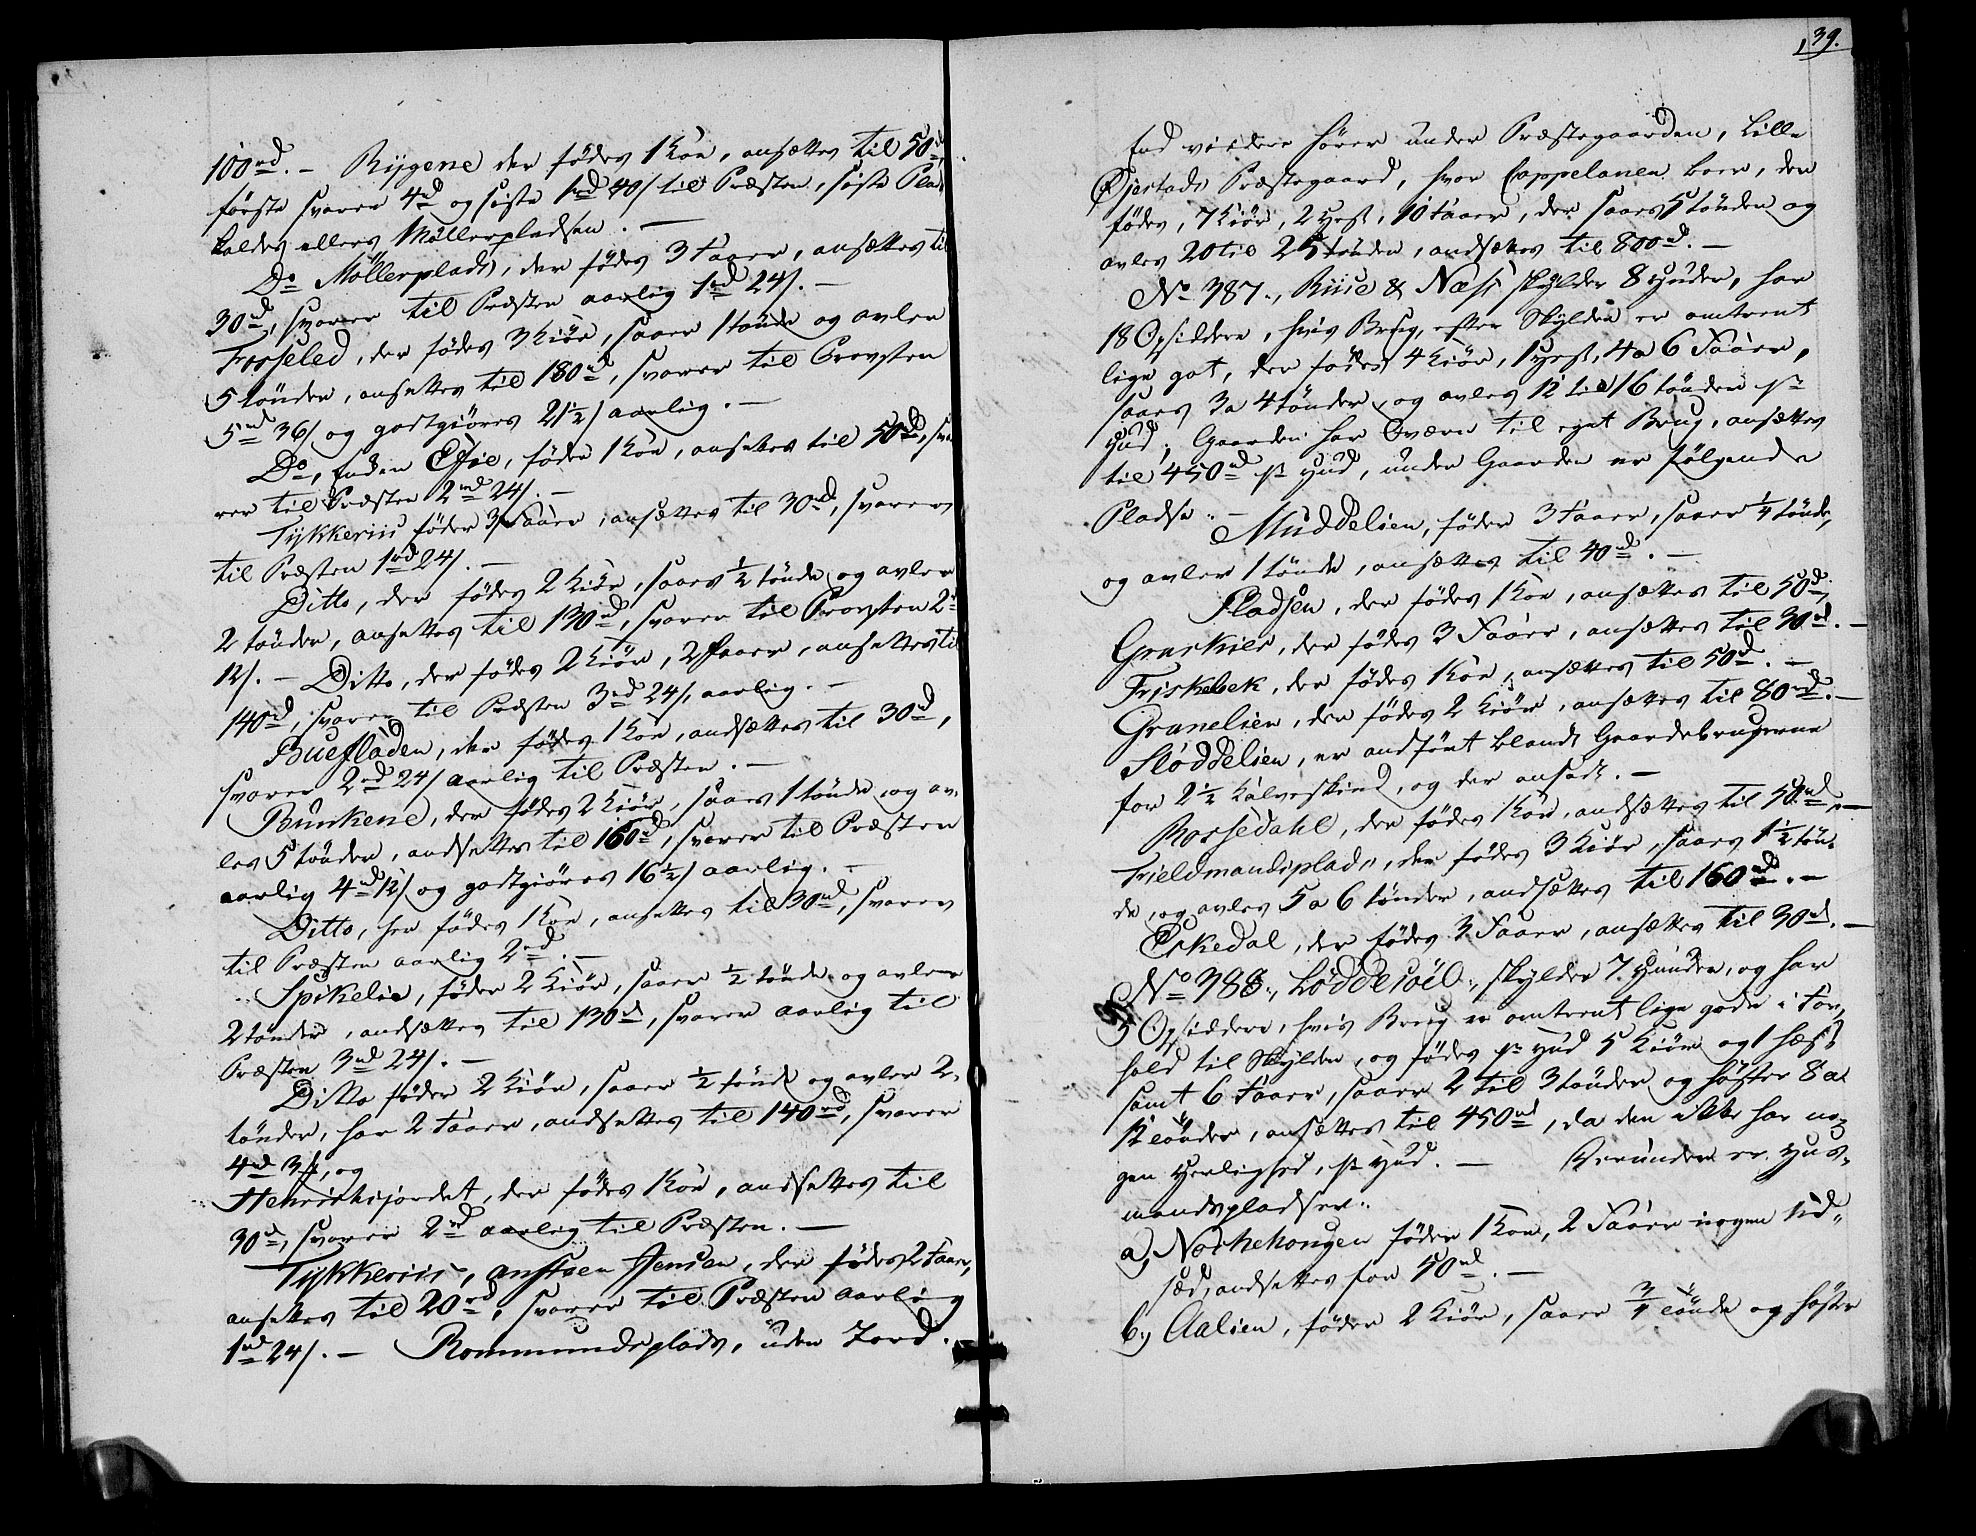 100rd. – Rygene der fødes 1 Koe, ansættes til 50rd,
første svarer 4rd og siste 1rd 40/ til Præsten, siste Plads
kaldes ellers Møllerpladsen. –
Do Møllerplads, der fødes 3 Faaer, ansættes til
30rd, svarer til Præsten aarlig 1rd 24/. –
Fosseled, der fødes 3 Kiör, saaer 1 tönde og avler
5 tönder, ansettes til 180rd, svarer til Provsten
5rd 36/ og godtgiöres 21½/ aarlig. –
Do, Enken Else, föder 1 Koe, ansettes til 50rd, sva-
rer til Præsten 2rd 24/. –
Tykkeriis föder 3 Faaer, ansættes til 30rd, svarer
til Præsten 1rd 24/. –
Ditto, der födes 2 Kiör, saaes ½ tönde og avler
2 tönder, ansettes til 130rd, svarer til Provsten 2rd
12/. – Ditto, der födes 2 Kiör, 2 Faaer, ansettes til
140rd, svarer til Præsten 3rd 24/ aarlig. –
Buefladen, der fødes 1 Koe, andsættes til 30rd,
svarer 2rd 24/ aarlig til Præsten. –
Bunkene, der födes 2 Kiör, saaes 1 tönde, og av-
les 5 tönder, andsettes til 160rd, svarer til Præsten
aarlig 4rd 12/ og godtgiöres 16½/ aarlig. –
Ditto, her födes 1 Koe, ansettes til 30rd, svarer
til Præsten aarlig 2rd. –
Spikelie, föder 2 Kiör, saaer ½ tönde og avler
2 tönder, andsættes til 130rd, svarer aarlig til
Præsten 3rd 24/. –
Ditto föder 2 Kiör, saaer ½ tönde og avler 2
tönder, har 2 Faaer, andsettes til 140rd, svarer
4rd 3/, og
Henrichsjordet, der födes 1 Koe, andsettes til
30rd, svarer 2rd aarlig til Præsten. –
Tykkeriis, Jensen, der födes 2 Faaer,
ansettes til 20rd, svarer til Præsten aarlig
1rd 24/. – Rommundsplads, uden Jord.
39.
End videre hörer under Præstegaarden, Lille
Øjestads Præstegaard, hvor Cappelanen boer, der
födes, 7 Kiör, 2 Hest, 10 Faaer, der saaes 5 tönder og
avles 20 til 25 tönder, andsættes til 800rd. –
No 387., Riise & Næss skylder 8 Huder, har
18 Opsiddere, hvis Brug, efter Skylden er omtrent
lige got, der födes 4 Kiör, 1 Hest, 4 a 6 Faaer,
saaes 3 a 4 tönder, og avles 12 til 16 tönder pr
Hud; Gaarden har Qværn til eget Brug, ansættes
til 450rd pr Hud, under Gaarden er følgende
Pladse. –
Muddelien, föder 3 Faaer, saaer ¼ tönde,
og avler 1 tönde, ansættes til 40rd. –
Pladsen, der födes 1 Koe, ansættes til 50rd;
Græskiær, der födes 3 Faaer, ansættes til 30rd. –
Friskebek, der födes 1 Koe, ansættes til 50rd. –
Granelien, der födes 2 Kiör, ansættes til 80rd. –
Støddelien, er andført blandt Gaardebrugerne
for 2½ Kalveskind, og der ansadt. –
Rossedahl, der födes 1 Koe, andsættes til 50rd. –
Fieldmandsplads, der födes 3 Kiör, saaes 1½ tön-
de, og avles 5 a 6 tönder, andsættes til 160rd. –
Eskedal, der födes 3 Faaer, ansættes til 30rd. –
No 388., Løddesöel., skylder 7 Huuder, og har
5 Opsiddere, hvis Brug er omtrent lige gode i For-
hold til Skylden, og födes pr Hud 5 Kiör og 1 Hest
samt 6 Faaer, saaer 2 til 3 tönder og høster 8 a
12 tönder, ansættes til 450rd, da den ikke har no-
gen Herlighed, pr Hud. – Herunder er Huus-
mandspladser:
a, Nochehougen föder 1 Koe, 2 Faaer ingen Ud-
sæd, andsettes for 50rd. –
b., Aalien, föder 2 Kiör, saaer ¾ tönde og høster